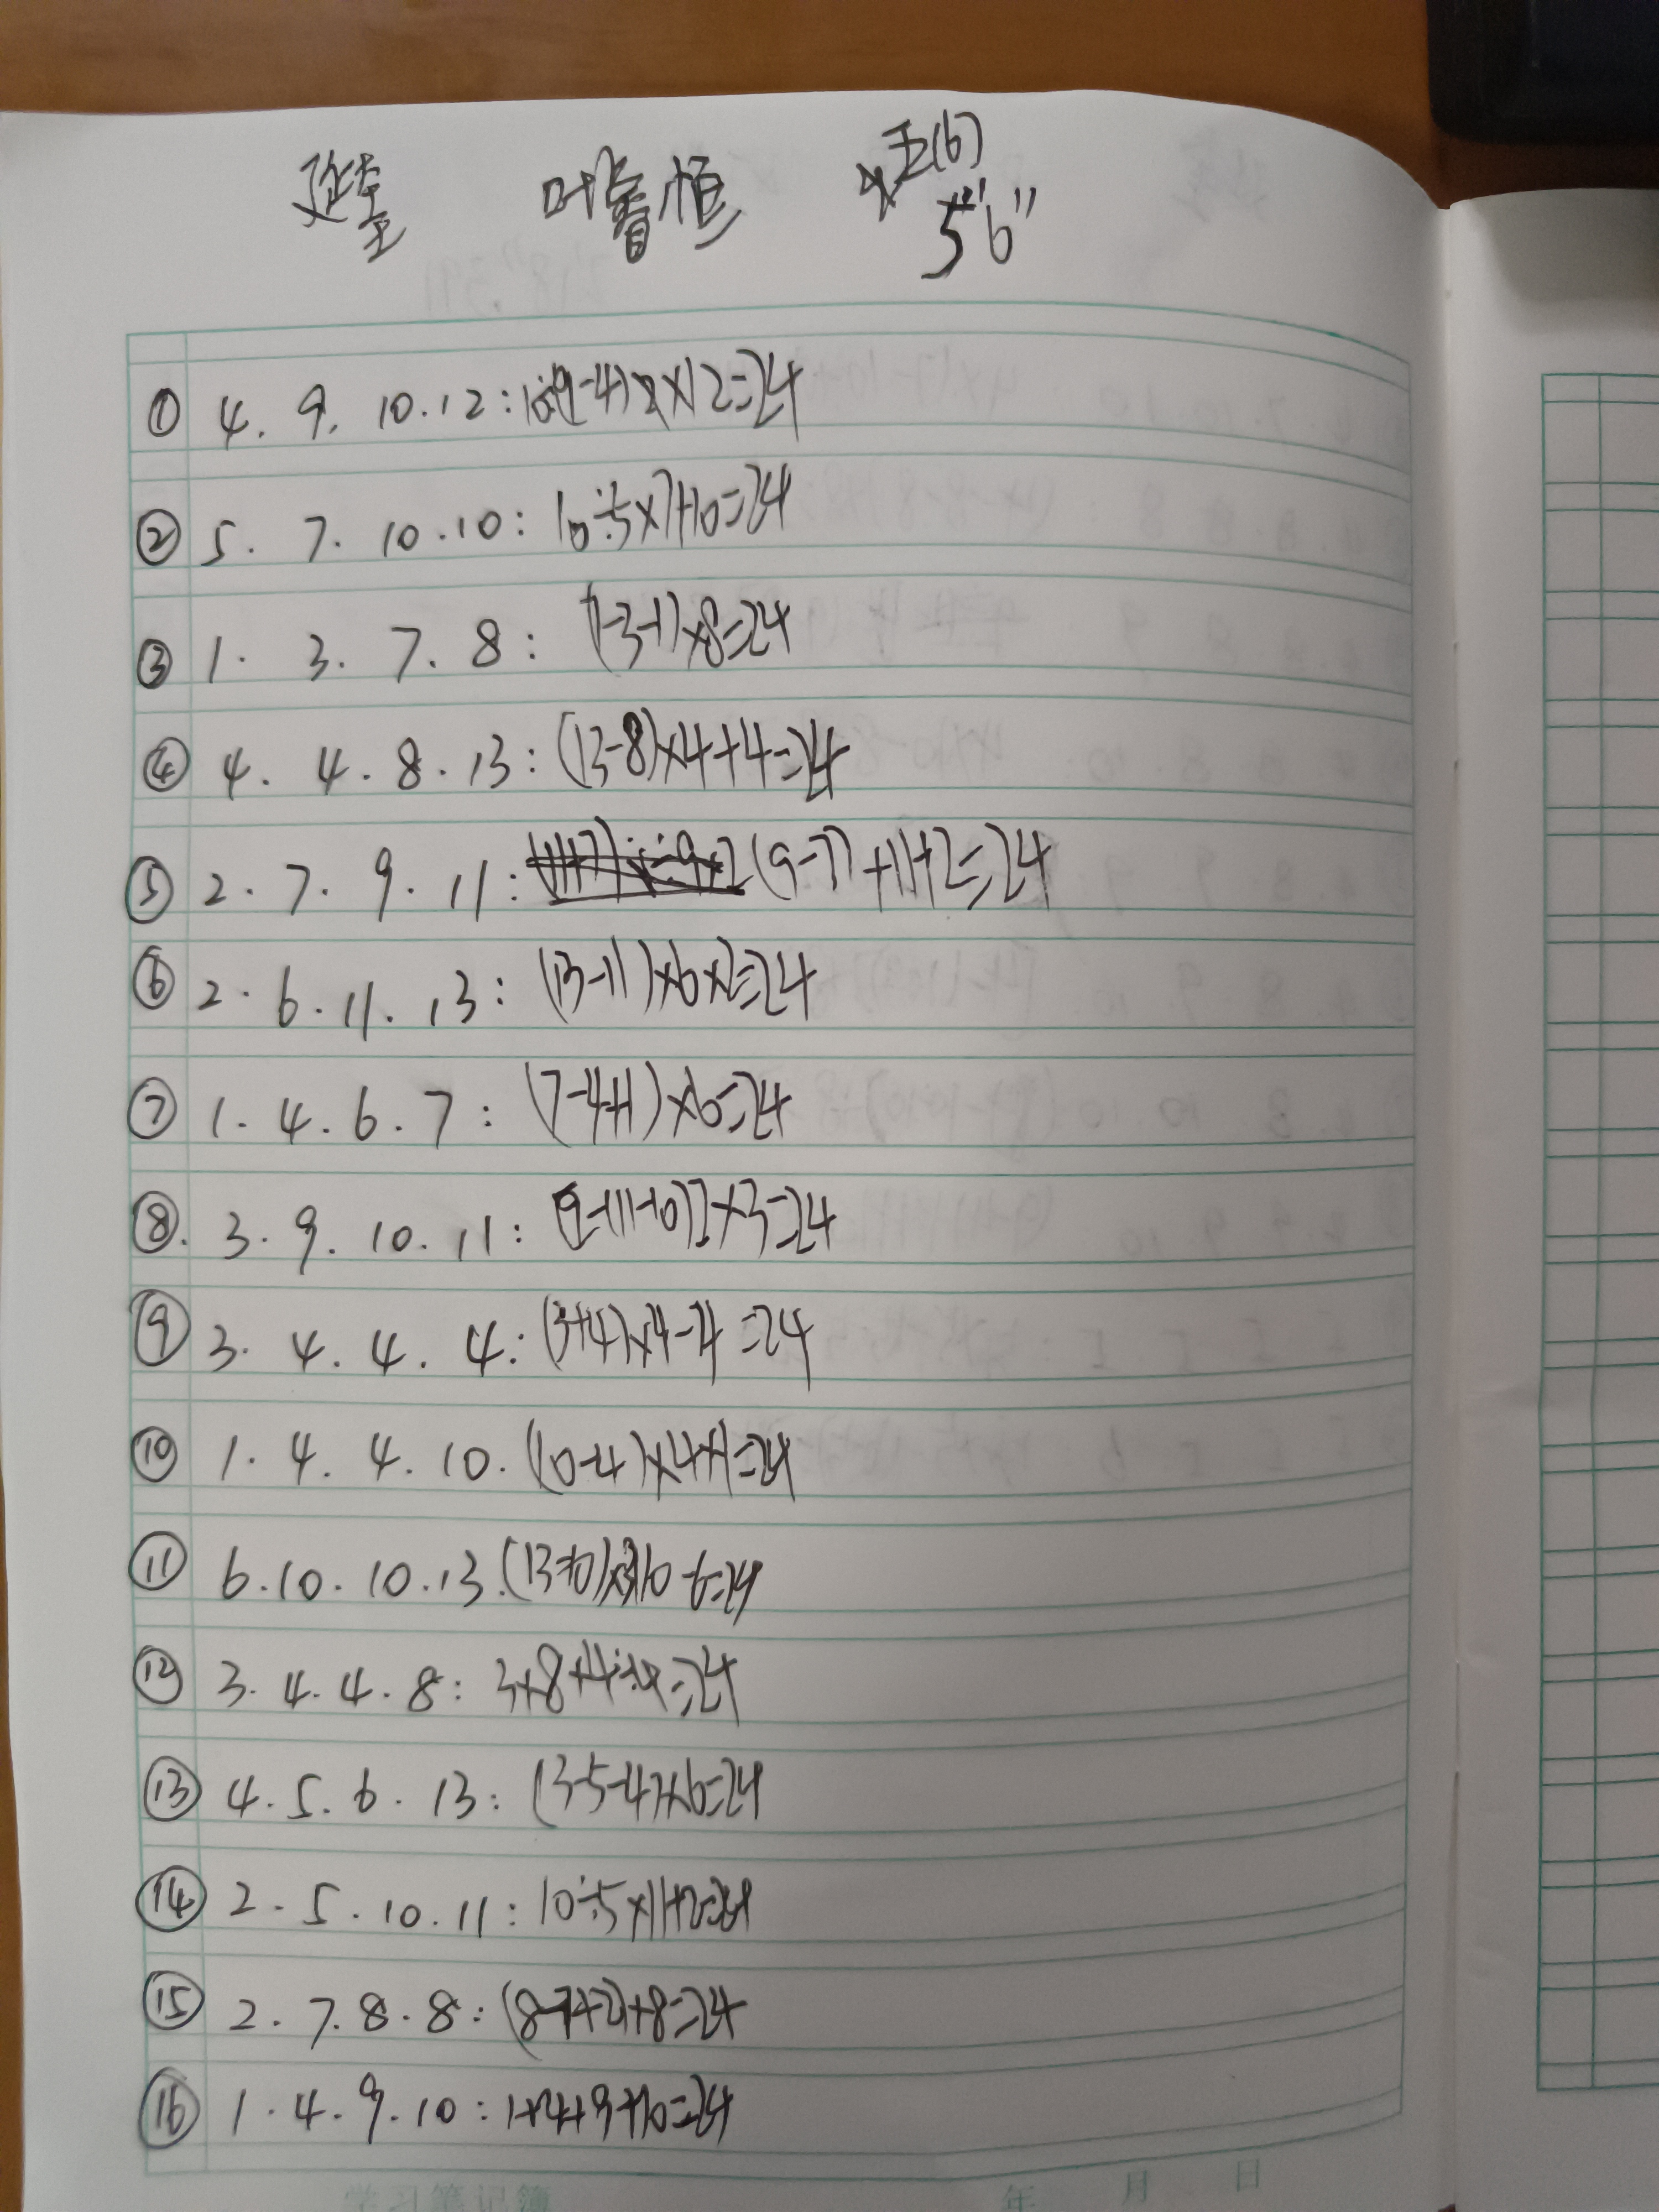 叶睿恒 五(6)
5'6"
① 4. 9. 10. 12: 10÷(9-4)×12=24
② 5. 7. 10. 10: 10÷5×7+10=24
③ 1. 3. 7. 8: (7-3-1)×8=24
④ 4. 4. 8. 13: (13-8)×4+4=24
⑤ 2. 7. 9. 11: (9-7)+11+2=24
⑥ 2. 6. 11. 13: (13-11)×6×2=24
⑦ 1. 4. 6. 7: (7-4+1)×6=24
⑧. 3. 9. 10. 11: [9-(11-10)]×3=24
⑨ 3. 4. 4. 4: (3+4)×4-4=24
⑩ 1. 4. 4. 10. (10-4)×4×1=24
⑪ 6. 10. 10. 13. (13-10)×10-6=24
⑫ 3. 4. 4. 8: 3×8+4-4=24
⑬ 4. 5. 6. 13: (13-5-4)×6=24
⑭ 2. 5. 10. 11: 10÷5×11+2=24
⑮ 2. 7. 8. 8: (8-7+2)×8=24
⑯ 1. 4. 9. 10: 1+4+9+10=24
学习笔记簿 年 月 日